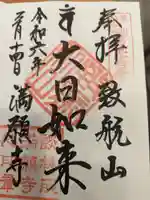 奉拝 致航山
大日如来
令和六年
二月十四日 満願寺